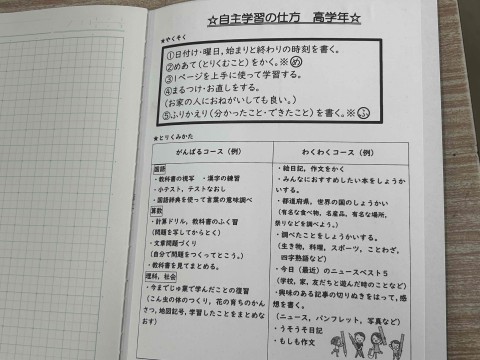 ☆自主学習の仕方　高学年☆
★やくそく
①日付け・曜日，始まりと終わりの時刻を書く。
②めあて（とりくむこと）をかく。※め
③1ページを上手に使って学習する。
④まるつけ・お直しをする。
（お家の人におねがいしても良い。）
⑤ふりかえり（分かったこと・できたこと）を書く。※ふ
★とりくみかた
がんばるコース（例）
国語
・教科書の視写　・漢字の練習
・小テスト，テストなおし
・国語辞典を使って言葉の意味調べ
算数
・計算ドリル，教科書のふく習
（問題を写してからとく）
・文章問題づくり
（自分で問題をつくってとこう。）
・教科書を見てまとめる。
理科，社会
・今までじゅ業で学んだことの復習
（こん虫の体のつくり，花の育ちのかん
さつ，地図記号，学習したことをまとめな
おす）
わくわくコース（例）
・絵日記，作文をかく
・みんなにおすすめしたい本をしょうか
いする。
・都道府県，世界の国のしょうかい
（有名な食べ物，名産品，有名な場所，
祭りなどを調べよう。）
・調べたことをしょうかいする。
（生き物，料理，スポーツ，ことわざ，
四字熟語など）
・今日（最近）のニュースベスト5
（学校，家，友だちと遊んだ時のことなど）
・興味のある記事の切りぬきをはって，感
想を書く。
（ニュース，パンフレット，写真など）
・うそうそ日記
・もしも作文